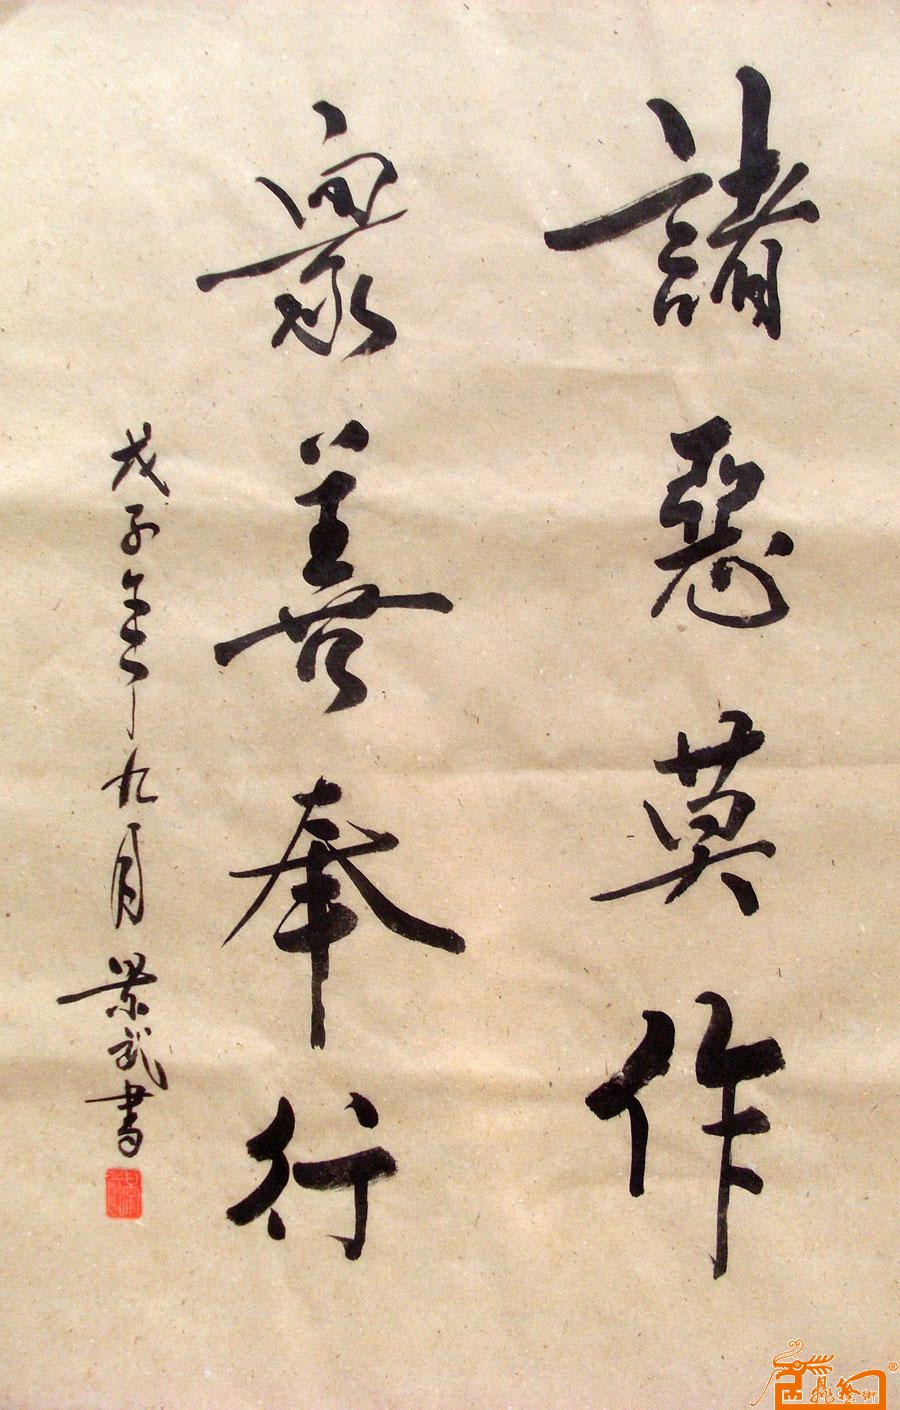 諸惡莫作
衆善奉行
戊子年九月景武書